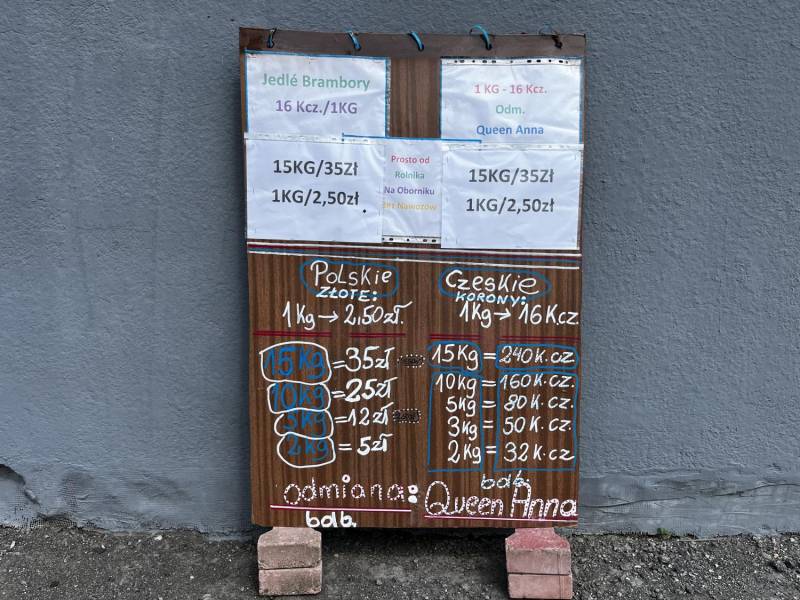 Jedlé Brambory
16 Kcz./1KG
1 KG - 16 Kcz.
Odm.
Queen Anna
15KG/35Zł
1KG/2,50zł.
Prosto od
Rolnika
Na Oborniku
Bez Nawozów
15KG/35Zł
1KG/2,50zł
Polskie
ZŁOTE:
1Kg → 2,50zł.
15Kg = 35zł
10Kg = 25zł
5Kg = 12zł
2Kg = 5zł
Czeskie
KORONY:
1Kg → 16K.cz.
15Kg = 240K.cz.
10Kg = 160K.cz.
5Kg = 80K.cz.
3Kg = 50K.cz.
2Kg = 32K.cz
odmiana: Queen Anna
bdb.
bdb.